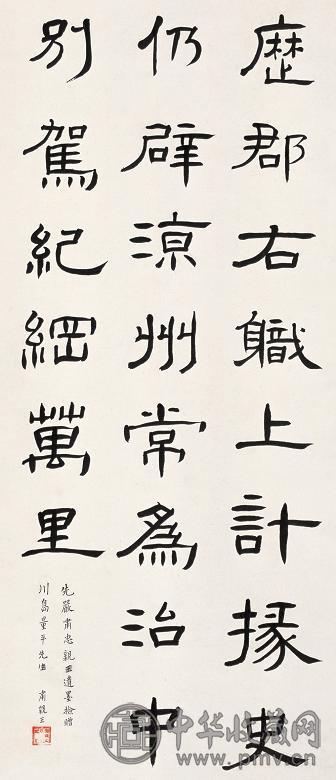 歷郡右軄上計掾史
仍辟涼州常爲治中
別駕紀綱萬里
先嚴肅忠親王遺墨撿贈
川島量平先生 肅
中华收藏网
www.pmv.cn